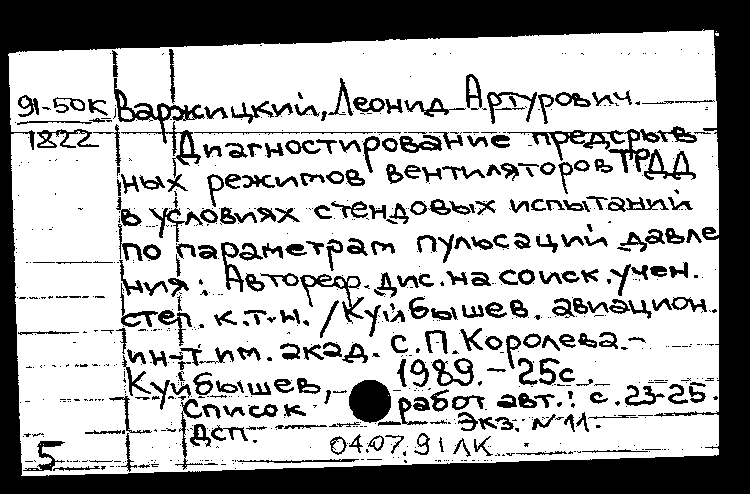 91-50К Варжицкий, Леонид Артурович.
1822 Диагностирование предсрыв-
ных режимов вентиляторов ТРДД
в условиях стендовых испытаний
по параметрам пульсаций давле
ния: Автореф. дис. на соиск. учен.
степ. к.т.н. / Куйбышев. авиацион.
ин-т им. акад. С.П. Королева.-
Куйбышев, 1989. - 25с.
Список работ авт.: с. 23-25.
Дсп. Экз. N 11.
5 04.07.91 ЛК